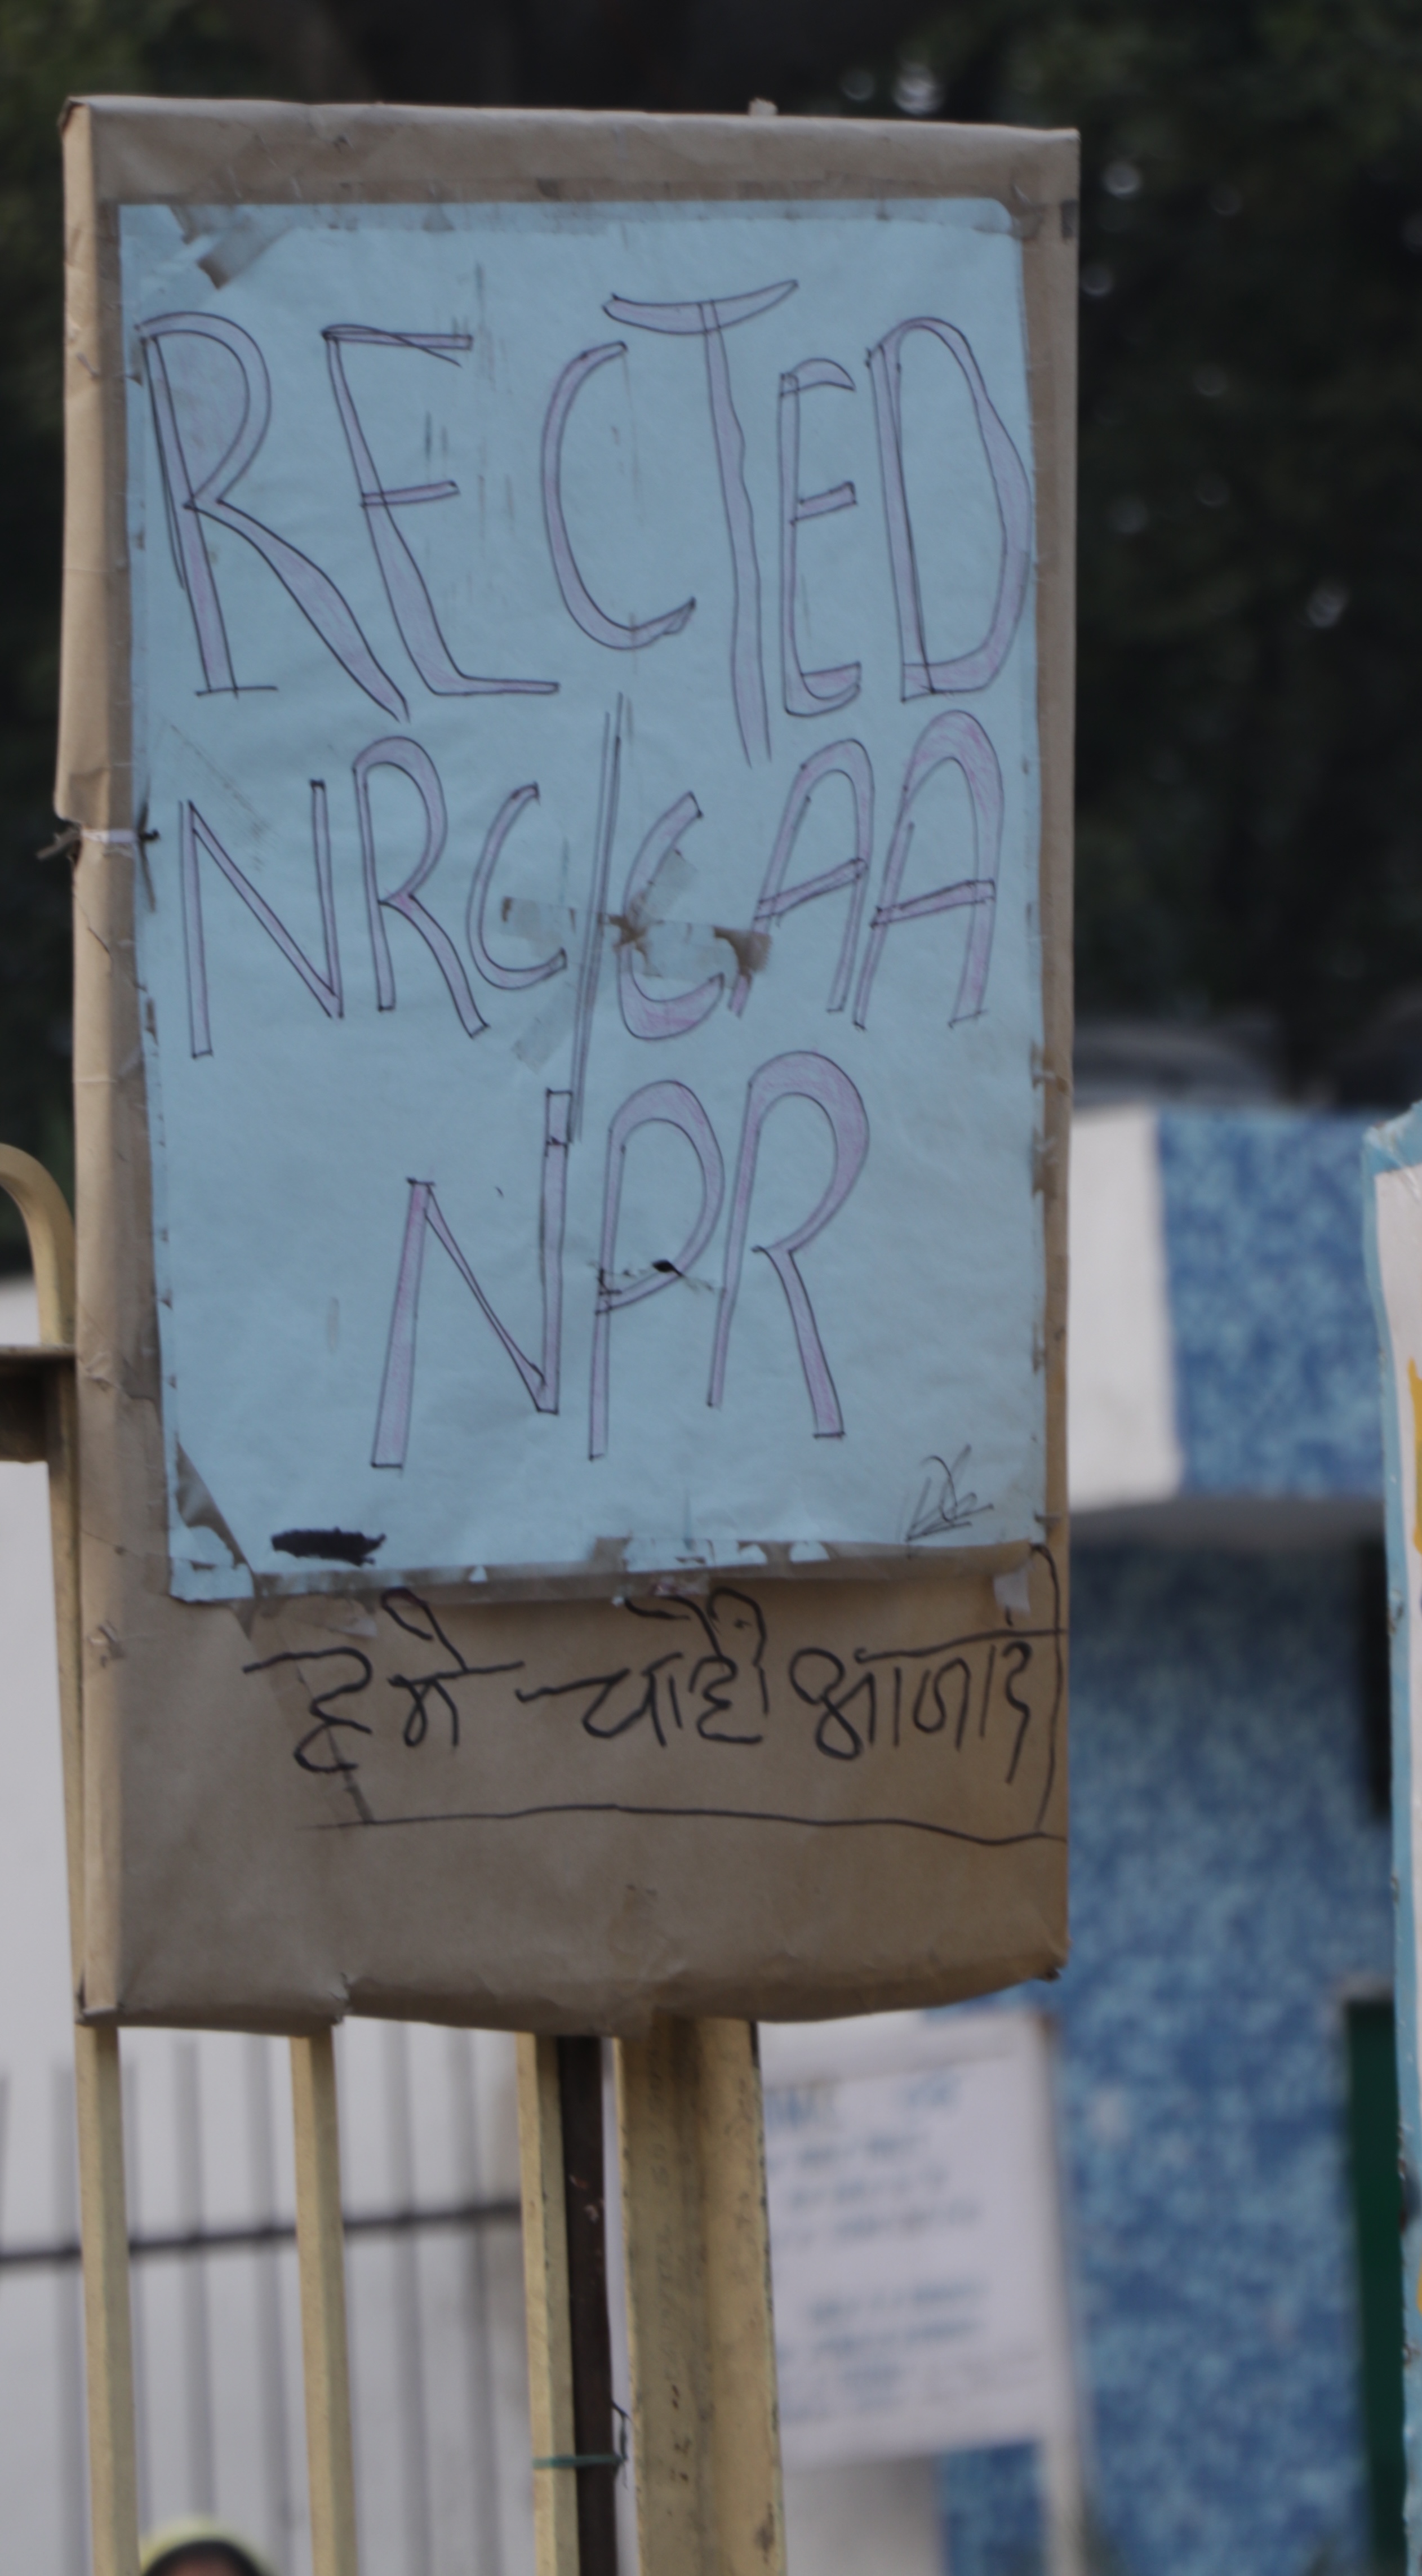 RECTED
NRC/CAA
NPR
हमे चाही आजादी